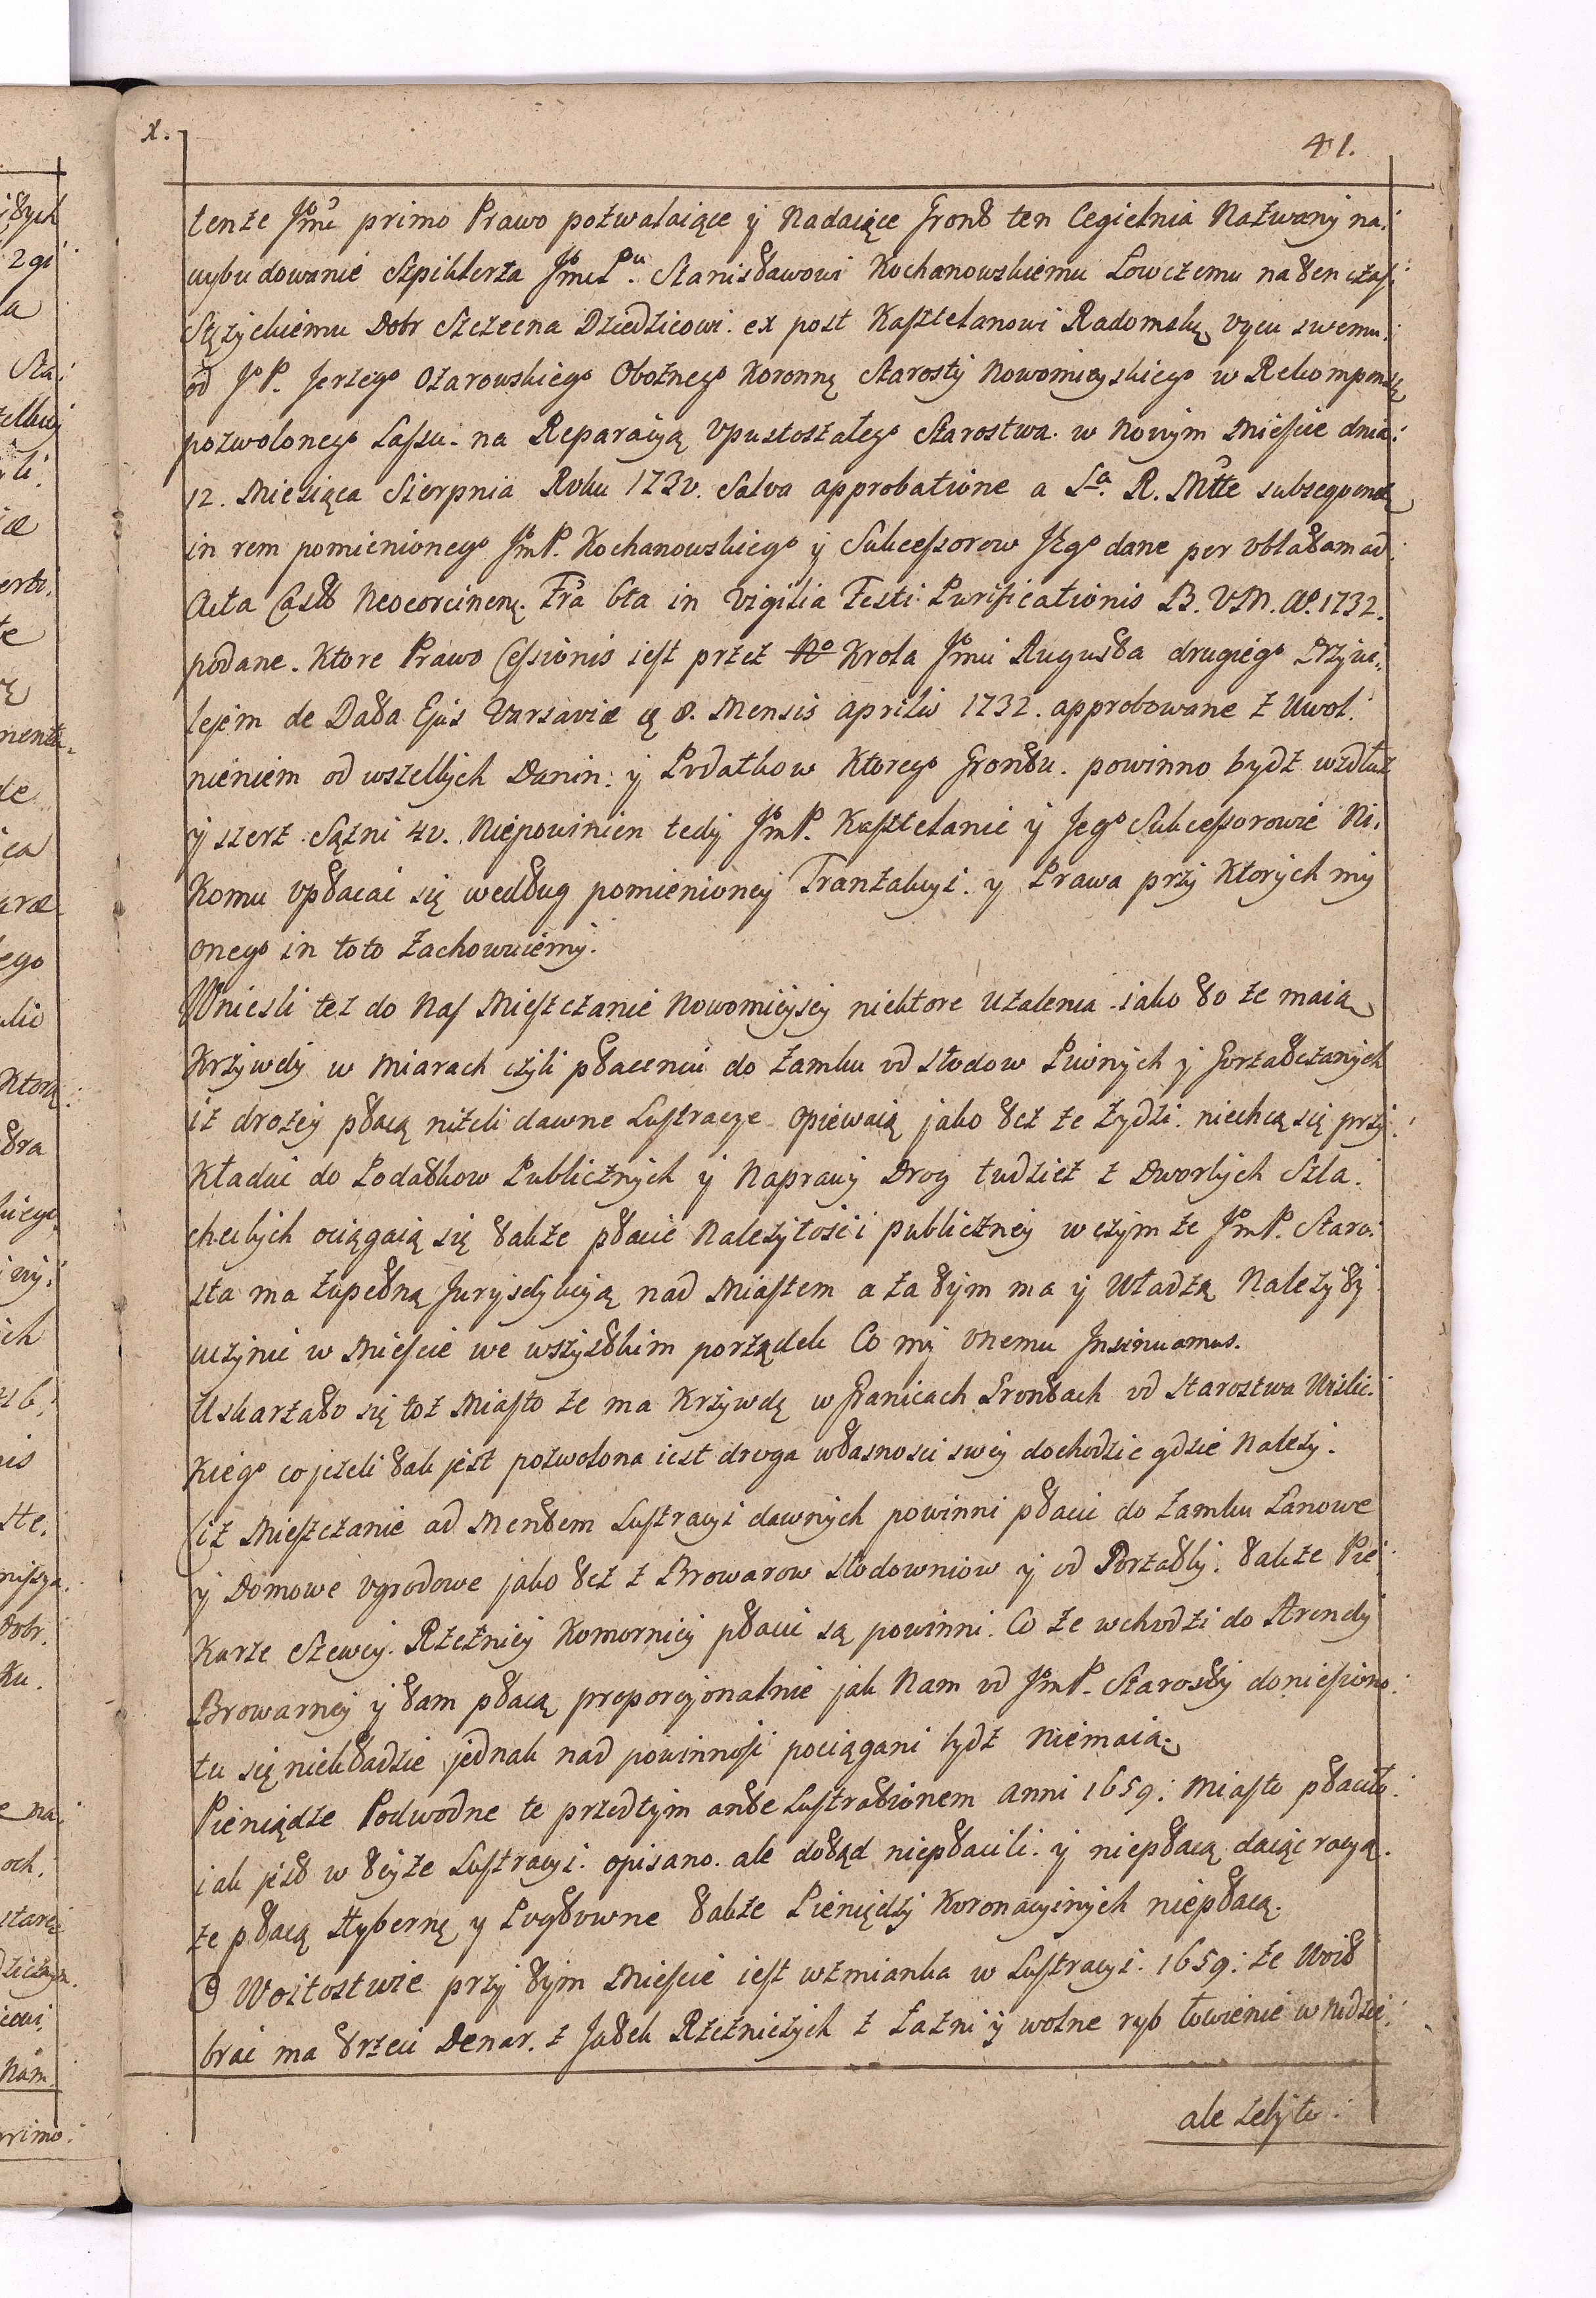 x.
41.
tenze Jmć primo Prawo pozwalaiące y Nadaiące Gront ten Cegielnia Nazwany na:
wybudowanie Szpiklerza JmćPu. Stanisławowi Kochanowskiemu Łowczemu na ten czas
Stężyckiemu Dobr Szczecna Dziedzicowi. ex post Kasztelanowi Radomskę Oycu swemu:
od JoP. Jerzego Ożarowskiego Oboznego Koronnę Starosty Nowomieyskiego w Rekompensę
pozwolonego Lassu. na Reparacyą Opustoszałego Starostwa. w Nowym Mieście dnia:
12. Miesiąca Sierpnia Roku 1730. Salva approbatione a Sa. R. Mtte subsequendę
in rem pomienionego JmP. Kochanowskiego y Sukcessorow Jego dane per oblatam ad:
Acta Castr Neocorcinenę. Fra 6ta in Vigilia Festi Purificationis B. V M. Ao. 1732.
podane. Ktore Prawo Cessionis iest przez Krola Jmći Augusta drugiego Przywi:
lejem de Data Ejus Varsaviæ 8. Mensis Aprilis 1732. approbowane z Uwol:
nieniem od wszelkich Danin: y Podatkow Ktorego Grontu. powinno bydź wzdłuz
y szerz Sązni 40. Niepowinien tedy JmP. Kasztelanic y Jego Sukcessorowie Ni:
Komu opłacać się według pomienioney Tranzakcyi. y Prawa przy Ktorych my
onego in toto zachowuiemy.
Wniesli tez do Nas Mieszczanie Nowomieyscy niektore Uzalenia iako to ze maią
Krzywdy w Miarach czyli płaceniu do Zamku od słodow Piwnych y Gorzałczanych
iz drozey płacą nizeli dawne Lustracye opiewaią jako tez ze Zydzi. niechcą się przy:
Kładać do Podatkow Publicznych y Naprawy Drog tudziez z Dworkych Szla:
checkych ociągaią się takze płacić Nalezytości publiczney w czym ze JmP. Staro:
sta ma zupełną Jurysdykcyą nad Miastem a zatym ma y Władzą Nalezyty
uczynić w Mieście we wszystkim porządek Co my onemu Insinuamus.
Uskarzało się toz Miasto ze ma Krzywdę w Granicach Grontach od Starostwa Wislic:
Kiego co jezeli tak jest pozwolona iest droga własności swey dochodzić gdzie Nalezy.
Ciz Mieszczanie ad Mentem Lustracyi dawnych powinni płacić do Zamku Łanowe
y Domowe ogrodowe jako tez z Browarow słodowniow y od Gorzałky. takze Pie:
Karze Szewcy. Rzeźnicy Komornicy płacić są powinni. Co ze wchodzi do Arendy
Browarney y tam płacą proporcyonalnie jak Nam od JmP. Starosty doniesiono:
tu się niekładzie jednak nad powinności pociągani bydź niemaią.
Pieniądze Podwodne te przedtym ante Lustrationem anni 1659: Miasto płaciło:
iak jest w teyze Lustracyi. opisano. ale dotąd niepłacili. y niepłacą daiąc racyą.
ze płacą Hybernę y Pogłowne takze Pieniędzy Koronacyinych niepłacą.
O Woitostwie przy tym Mieście iest wzmianka w Lustracyi. 1659: ze Woit
brać ma trzeci Denar. z Jatek Rzeźniczych z Łaźni y wolne ryb łowienie w Nidzie:
ale zeby to: